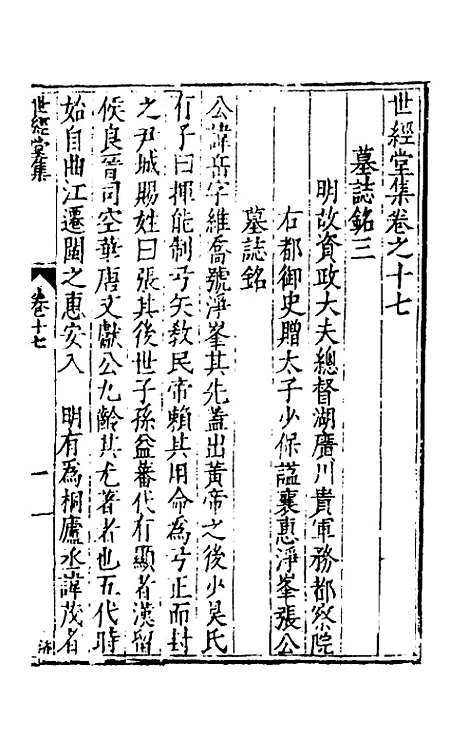 世經堂集卷之十七
墓誌銘三
明故資政大夫總督湖廣川貴軍務都察院
右都御史贈太子少保謚襄惠淨峯張公
墓誌銘
公諱岳字維喬號淨峯其先蓋出黃帝之後少昊氏
有子曰揮能制弓矢教民帝賴其用命為弓正而封
之尹城賜姓曰張其後世子孫益蕃代有顯者漢留
侯良晉司空華唐文獻公九齡其尤著者也五代時
始自曲江遷閩之惠安入　明有為桐廬丞諱茂者
世經堂集　卷十七　一